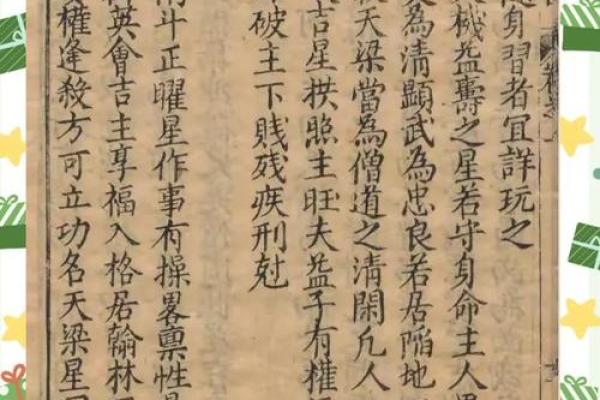 身習者宜詳玩之
機益壽之星若守身命主人
為清顯武為忠良若居陷地
天梁當為僧道之清閑凡人
吉星拱照主旺夫益子有權
破主下賤残疾刑尅
斗正曜星作事有操畧禀性
英會吉主享福入格居翰林
權逢殺方可立功名天梁星